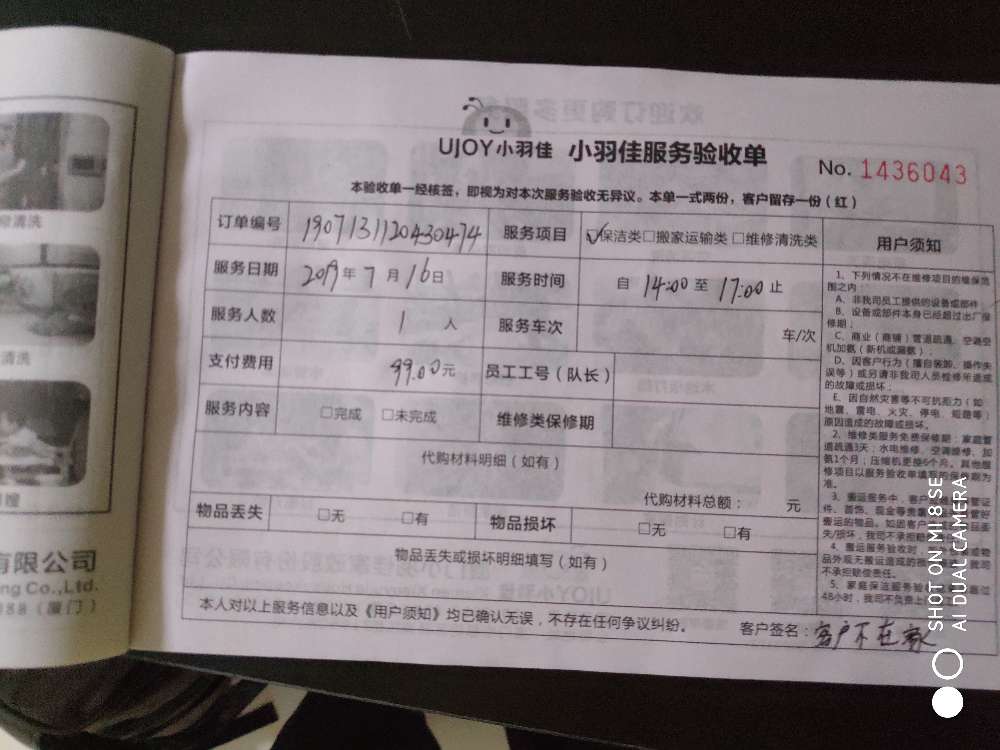 UJOY小羽佳 小羽佳服务验收单
No. 1436043
本验收单一经核签，即视为对本次服务验收无异议。本单一式两份，客户留存一份（红）
订单编号 1907131120430474 服务项目 ☑保洁类□搬家运输类□维修清洗类
服务日期 2019年7月16日 服务时间 自 14:00 至 17:00 止
服务人数 1 人 服务车次 车/次
支付费用 99.00元 员工工号（队长）
服务内容 □完成 □未完成 维修类保修期
代购材料明细（如有）
代购材料总额： 元
物品丢失 □无 □有 物品损坏 □无 □有
物品丢失或损坏明细填写（如有）
本人对以上服务信息以及《用户须知》均已确认无误，不存在任何争议纠纷。
客户签名：客户不在家
用户须知
1、下列情况不在维修项目的维保范
围之内：
A、非我司员工提供的设备或部件
B、设备或部件本身已经超过出厂保
修期；
C、商业（商铺）管道疏通、空调空
机加氨（新机或漏氨）；
D、因客户行为（擅自装卸、操作失
误等）或另请非我司人员检修所造成
的故障或损坏；
E、因自然灾害等不可抗拒力（如
地震、雷电、火灾、停电、短路等）
原因造成的故障或损坏。
2、维修类服务免费保修期：家庭管
道疏通3天；水电维修、空调维修、加
氨1个月；压缩机更换6个月。其他服
修项目以服务验收单填写的保修期为
准。
3、搬运服务中，客户
件、首饰、现金等贵
搬运的物品。如因客户
失/损坏，我司不承担赔
4、搬运服务验收时，
品外观无搬运造成的
不承担赔偿责任。
5、家庭保洁服务验
48小时，我司不负责上
清洗
清洗
有限公司
ng Co.,Ltd.
988（厦门）
SHOT ON MI 8 SE
AI DUAL CAMERA